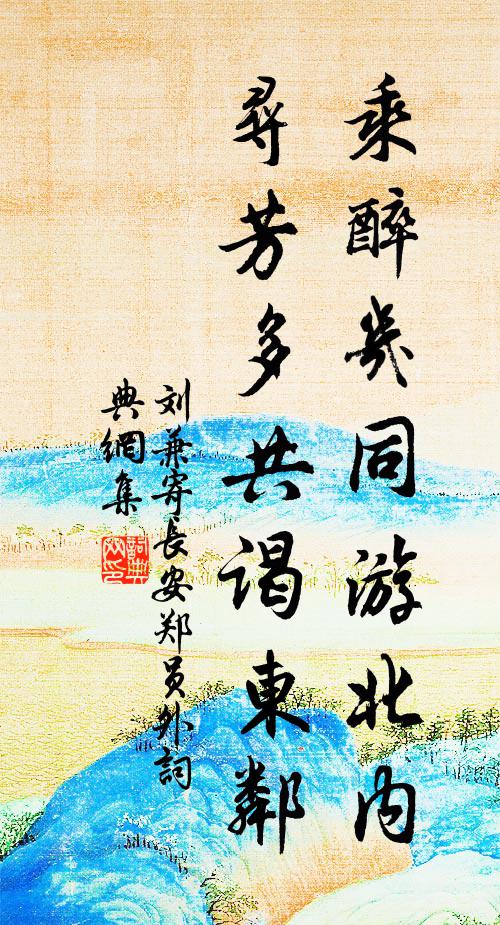 乘醉幾同游北内
尋芳多共谒東鄰
刘兼寄长安郑员外詞
典網集
詞典
网印